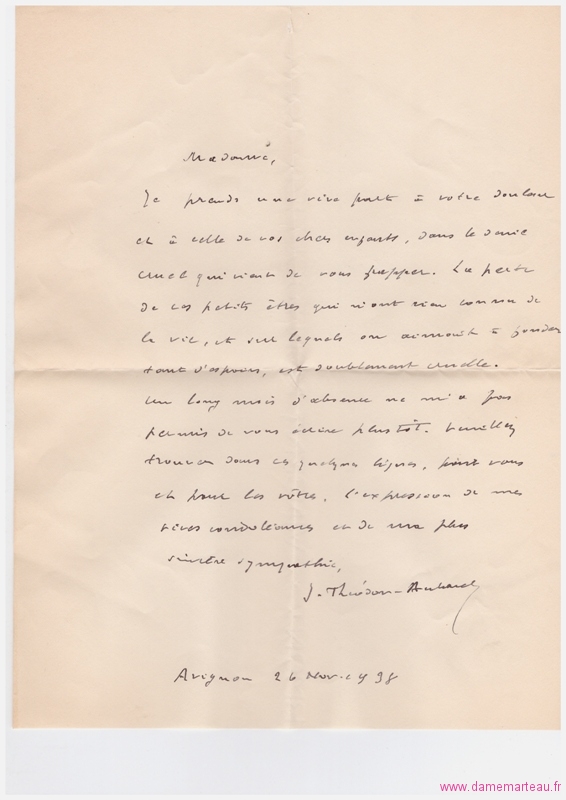 Madame,
Je prends une vive part à votre douleur
et à celle de vos chers enfants, dans le deuil
cruel qui vient de vous frapper. La perte
de ces petits êtres qui n'ont rien connu de
la vie, et sur lesquels on aimait à fonder
tant d'espoirs, est doublement cruelle.
Un long mois d'absence ne m'a pas
permis de vous écrire plus tôt. Veuillez
trouver dans ces quelques lignes, pour vous
et pour les vôtres, l'expression de mes
vives condoléances et de ma plus
sincère sympathie,
J. Théodore-Aubanel
Avignon 26 Nov. 1938
www.damemarteau.fr